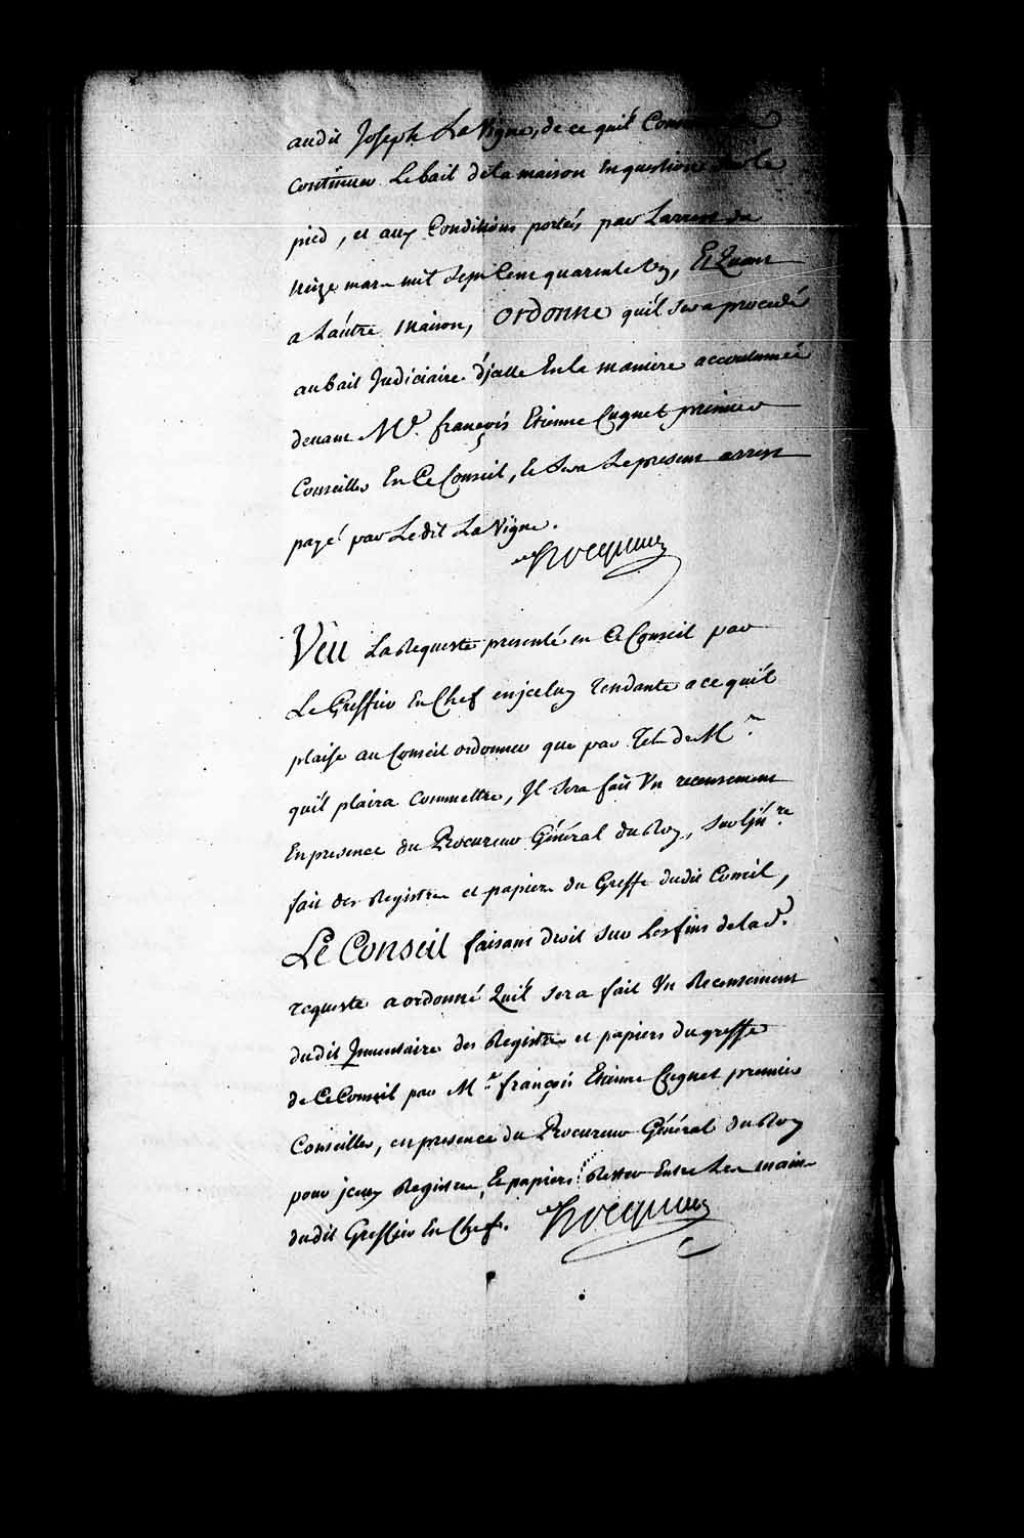 audit Joseph La Vigne, de ce qu'il
continuer Le bail de la maison en question sur le
pied, et aux Conditions portés par Larrest du
treize mars mil Sept Cent quarante Un, Et Quant
a Lautre maison, ordonne qu'il sera procedé
au bail Judiciaire d'jcelle En la maniere accoutumée
devant Me. françois Etienne Cugnet premier
Conseiller En Ce Conseil, & sera Le present arrest
payé par Ledit La Vigne.
Hocquart
Veu La Requeste presenté en Ce Conseil par
Le Greffier En Chef en jceluy Tendante a ce qu'il
plaise au Conseil ordonner que par Tel de Mrs.
qu'il plaira Commettre, Il sera fait Un recensement
En presence du Procureur Général du Roy, sur l'Jnre.
fait des Registres et papiers du Greffe dudit Conseil,
Le Conseil faisant droit sur Les fins de lad.
requeste a ordonné Quil sera fait Un Recensement
dudit Jnventaire des Registres et papiers du greffe
de Ce Conseil par Mr. françois Etienne Cugnet premier
Conseiller, en presence du Procureur Général du Roy
pour jceux Registres & papiers Rester Entre Les mains
dudit Greffier En Chef. Hocquart